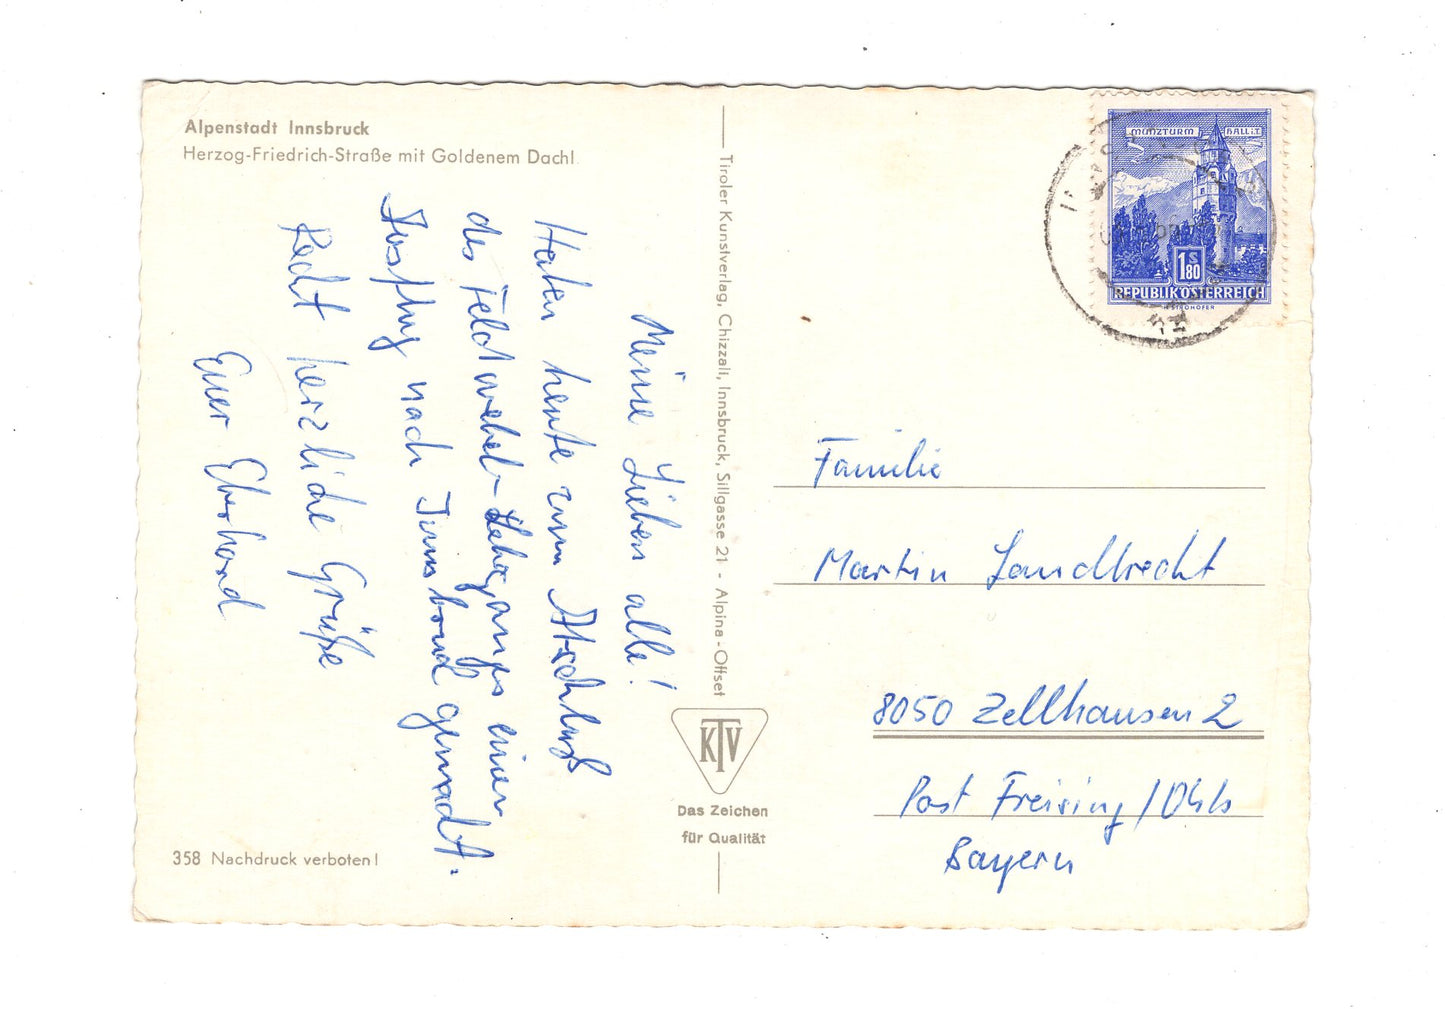 Alpenstadt Innsbruck
Herzog-Friedrich-Straße mit Goldenem Dachl
Meine Lieben alle!
Haben heute zum Abschluß
des Feldwebel-Lehrgangs einen
Ausflug nach Innsbruck gemacht.
Recht herzliche Grüße
Euer Eberhard
358 Nachdruck verboten!
Tiroler Kunstverlag, Chizzali, Innsbruck, Sillgasse 21 - Alpina-Offset
KTV
Das Zeichen
für Qualität
MÜNZTURM HALL i.T.
S
1.80
REPUBLIK ÖSTERREICH
Familie
Martin Landbrecht
8050 Zellhausen 2
Post Freising/Obb
Bayern